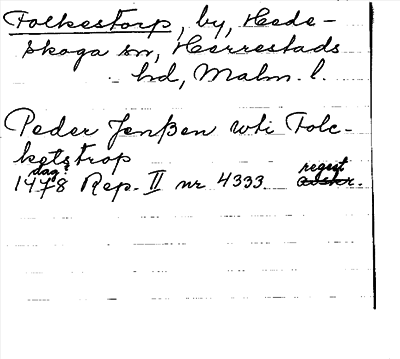 Folkestorp, by, Hede-
skoga sn, Herrestads
hd, Malm. l.
Peder Jenßen wti Folc-
ketstrop
dag?
1478 Rep. II nr 4333 regest
avskr.